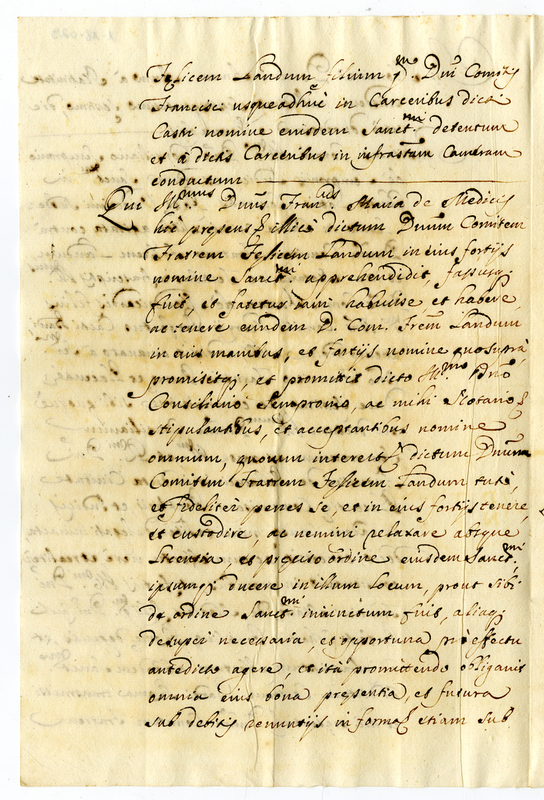 Felicem Landum filium q. D. Dni Comitis
Francisci usque adhuc in Carceribus dicti
Castri nomine eiusdem Sanct.mi detentum
et a dictis Carceribus in infrastam Cameram
conductum
Qui Ill.mus Dnus Fran.cus Maria de Medicis
hic presens et illicò dictum Dnum Comitem
Fratrem Felicem Landum in eius fortijs
nomine Sanct.mi apprehendidit,
fuit, et fatetur tam habuisse et habere
ac tenere eundem D. Com. Frem Landum
in eius manibus, et fortijs nomine quo suprà
promisitq, et promittit dicto Ill.mo Dno
Consiliario Sempronio, ac mihi Notario
stipulantibus, et acceptantibus nomine
omnium, quorum interest dictum Dnum
Comitem Fratrem Felicem Landum tutè,
et fideliter penes se, et in eius fortijs tenere,
et custodire, ac nemini relaxare absque
Licentia, et preciso ordine eiusdem Sanct.mi
ipsumq ducere in illum Locum, prout sibi
de ordine Sanct.mi iniunctum fuit, aliaq
desuper necessaria, et opportuna pro effectu
antedicto agere, et ità promittendo obligavit
omnia eius bona presentia, et futura
sub debitis renuntijs in forma, etiam sub